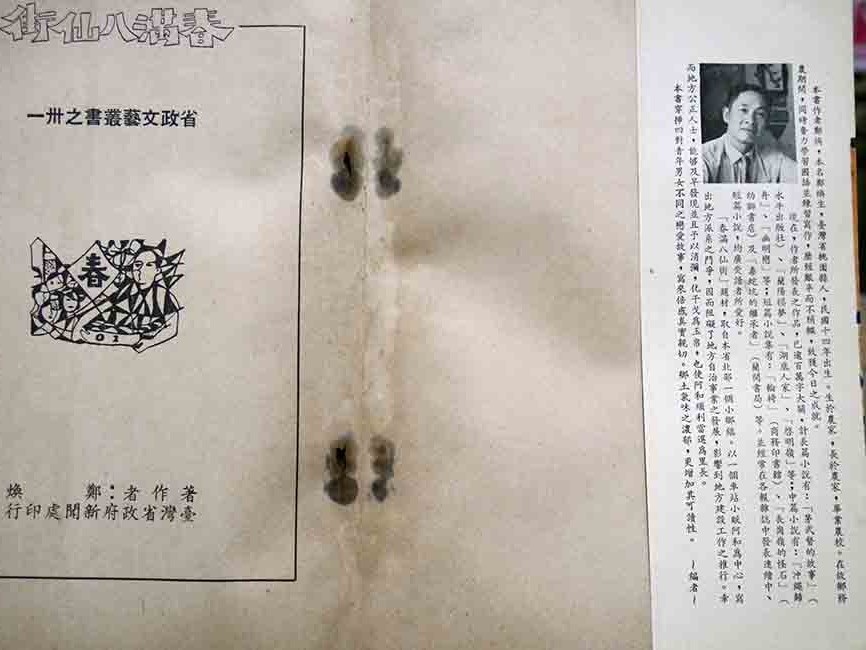 春滿八仙街
省政文藝叢書之卅一
春
著作者：鄭煥
臺灣省政府新聞處印行
本書作者鄭煥，本名鄭煥生，臺灣省桃園縣人，民國十四年出生。生於農家，長於農家，畢業農校。在故鄉務
農期間，同時奮力學習國語並練習寫作，歷經艱辛而不稍輟，故獲今日之成就。
現在，作者所發表之作品，已逾百萬字大關，計長篇小說有：「茅武督的故事」（
水牛出版社）、「蘭陽揚夢」、「湖底人家」、「啓明嶺」等；中篇小說有：「冲繩歸
舟」、「幽明戀」等；短篇小說集有：「輪椅」（商務印書館）、「長崗嶺的怪石」（
幼獅書店）及「毒蛇坑的繼承者」（蘭開書局）等。並經常在各報雜誌中發表連續中、
短篇小說，均廣受讀者所愛好。
「春滿八仙街」題材，取自本省北部一個小鄉鎮。以一個車站小販阿和為中心，寫
出地方派系之鬥爭，因而阻礙了地方自治事業之發展，影響到地方建設工作之推行。幸
而地方公正人士，能夠及早發現並且予以消彌，化干戈為玉帛，也使阿和順利當選為里長。
本書穿插四對青年男女不同之戀愛故事，寫來倍感真實親切。鄉土氣味之濃郁，更增加其可讀性。—編者—